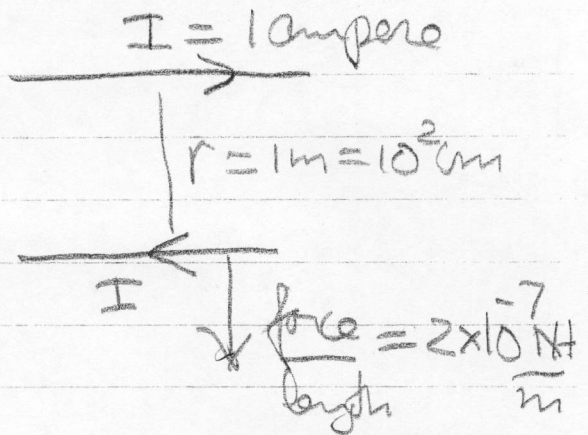 I = 1 ampere
r = 1m = 10² cm
I
force/length = 2×10⁻⁷ Nt/m